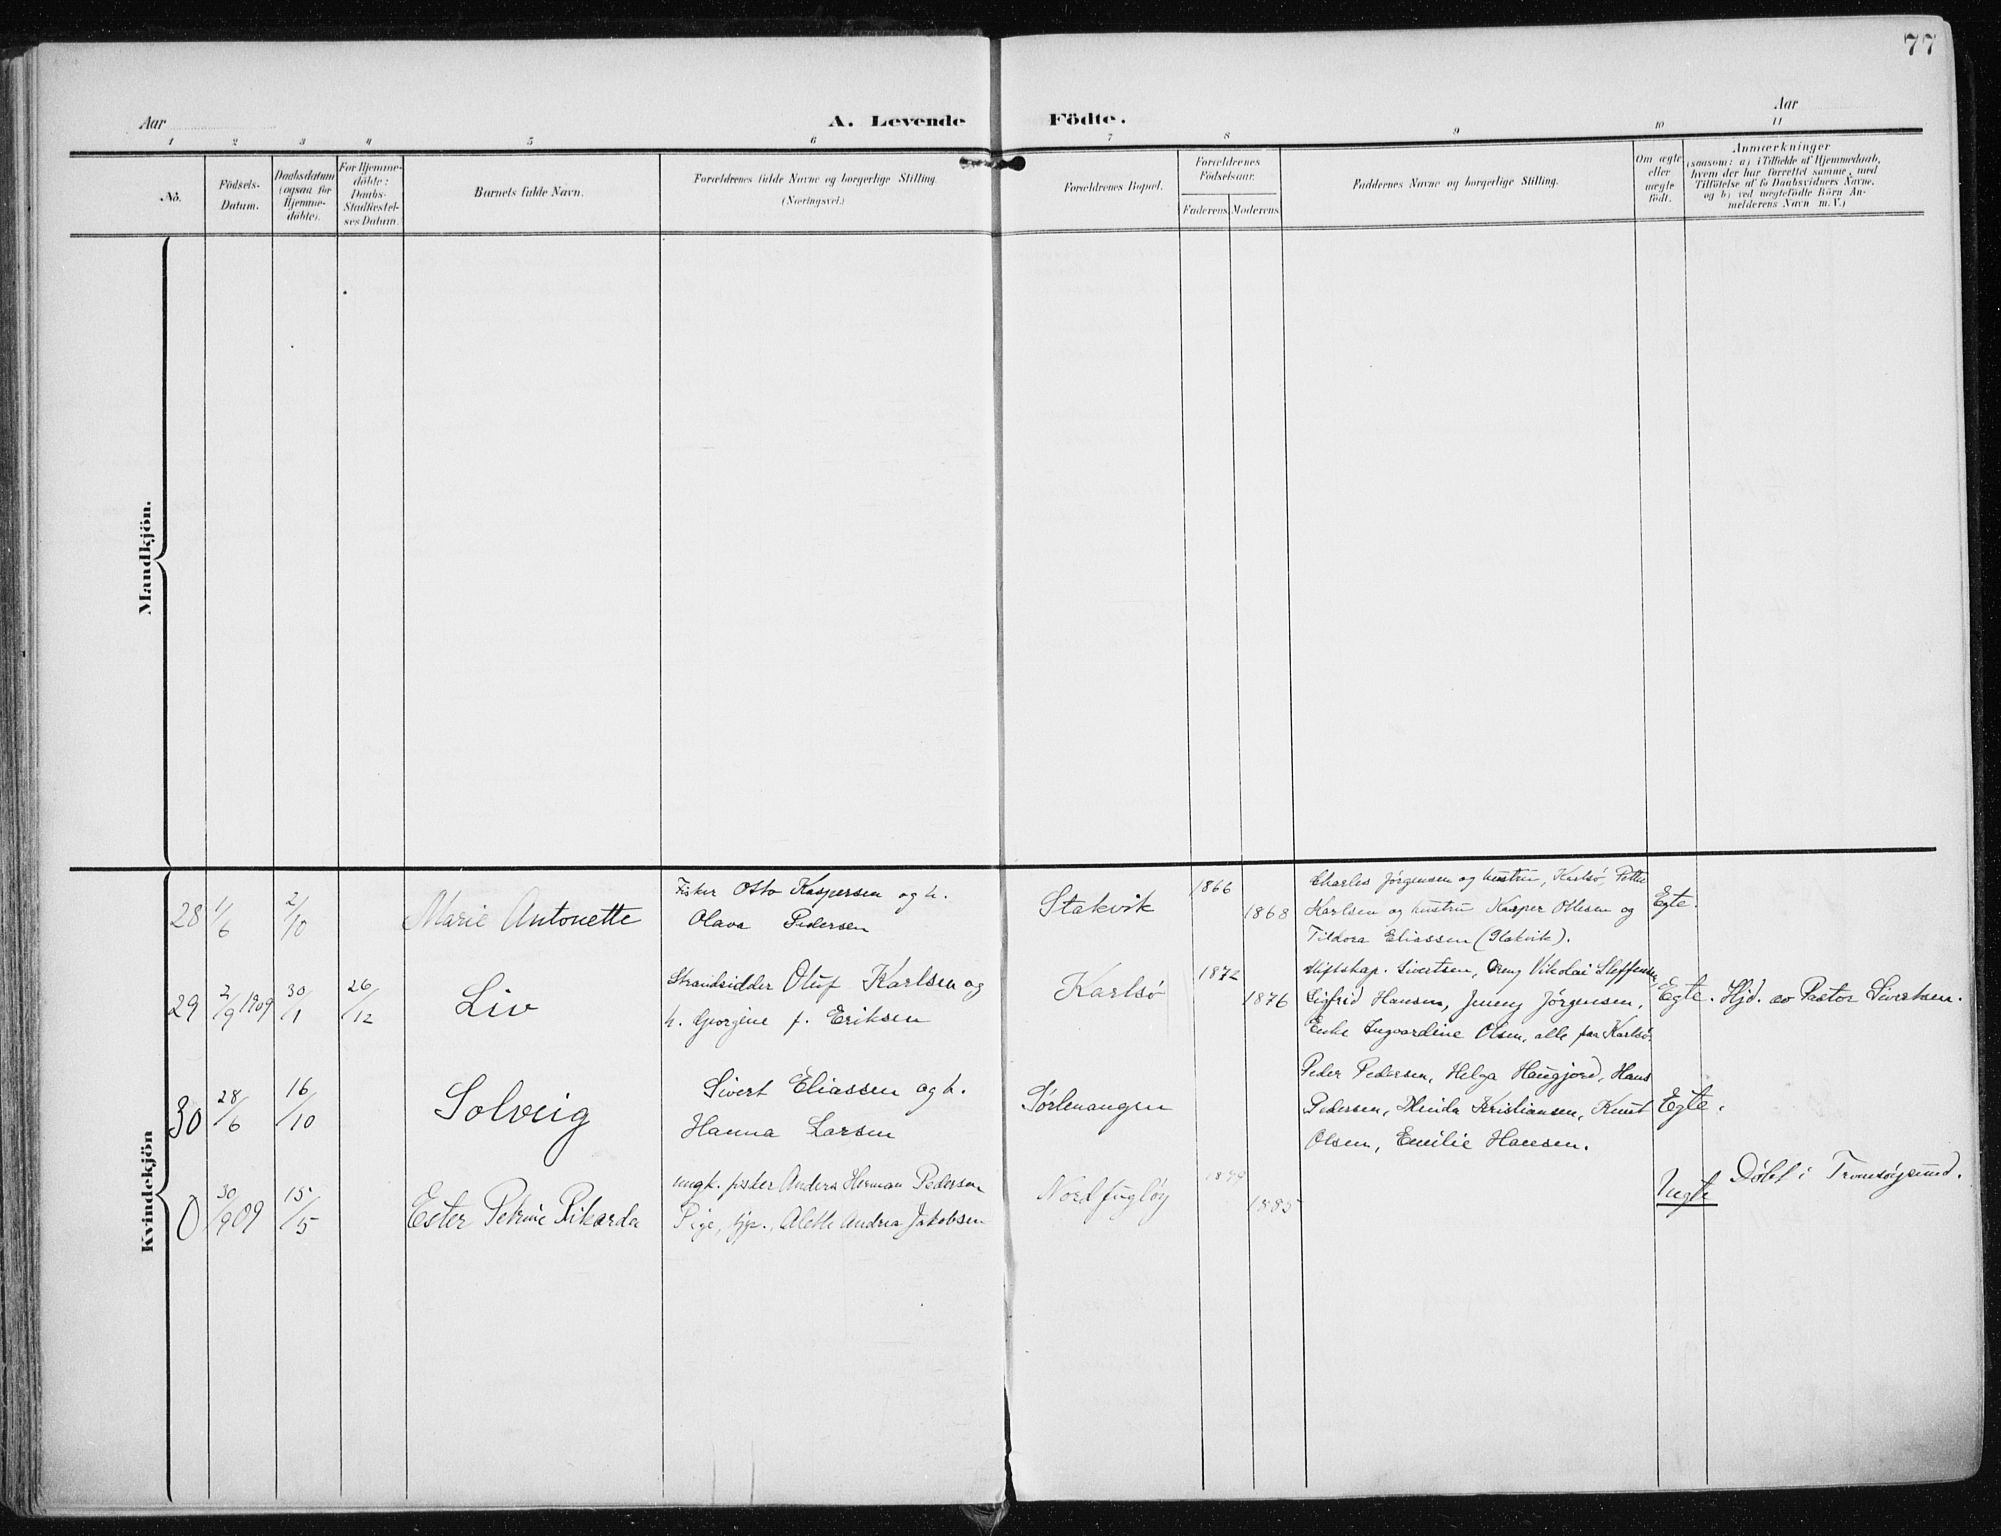 77
Aar
A. Levende Födte.
Aar
1 2 3 4 5 6 7 8 9 10 11
No.
Födsels-
Datum.
Daabsdatum
(ogsaa for
Hjemme-
döbte).
For Hjemme-
döbte:
Daabs-
Stadfæstel-
ses Datum.
Barnets fulde Navn.
Forældrenes fulde Navne og borgerlige Stilling
(Næringsvei.)
Forældrenes Bopæl.
Forældrenes
Födselsaar.
Faderens
Moderens
Faddernes Navne og borgerlige Stilling.
Om ægte
eller
uægte
födt.
Anmærkninger
(saasom: a) i Tilfælde af Hjemmedaab,
hvem der har forrettet samme, med
Tilföielse af to Daabsvidners Navne,
og b) ved uægtefödte Börn An-
melderens Navn m. V.)
Mandkjön.
Kvindekjön
28 1/6 2/10 Marie Antonette
Fisker Otto Kaspersen og h.
Olava Pedersen
Stakvik 1866 1868
Charles Jørgensen og hustru, Karlsö, Petter
Karlsen og hustru Kasper Olesen og
Tildora Eliassen (Stakvik).
Egte.
29 2/9 1909 30/1 26/12 Liv
Strandsidder Oluf Karlsen og
h. Georgine f. Eriksen
Karlsö 1872 1876
Stiftskap. Sivertsen, Dreng Nikolai Steffensen,
Sigfrid Hansen, Jenny Jørgensen,
Enke Ingvardine Olsen, alle paa Karlsö.
Egte. Hjd. av Pastor Sivertsen.
30 28/6 16/10 Solveig
Sivert Eliassen og h.
Hanna Larsen
Sörlenangen
Peder Pedersen, Helga Haugjord, Hans
Pedersen, Kristiansen, Knut
Olsen, Emilie Hansen.
Egte.
0 30/9 09 15/5 Ester Petrine Rikarda
ungk. fisker Anders Herman Pedersen
Pige, tjp., Alette Andrea Jakobsen
Nordfugløy 1879 1885
Uegte Døbt i Tromsøysund.